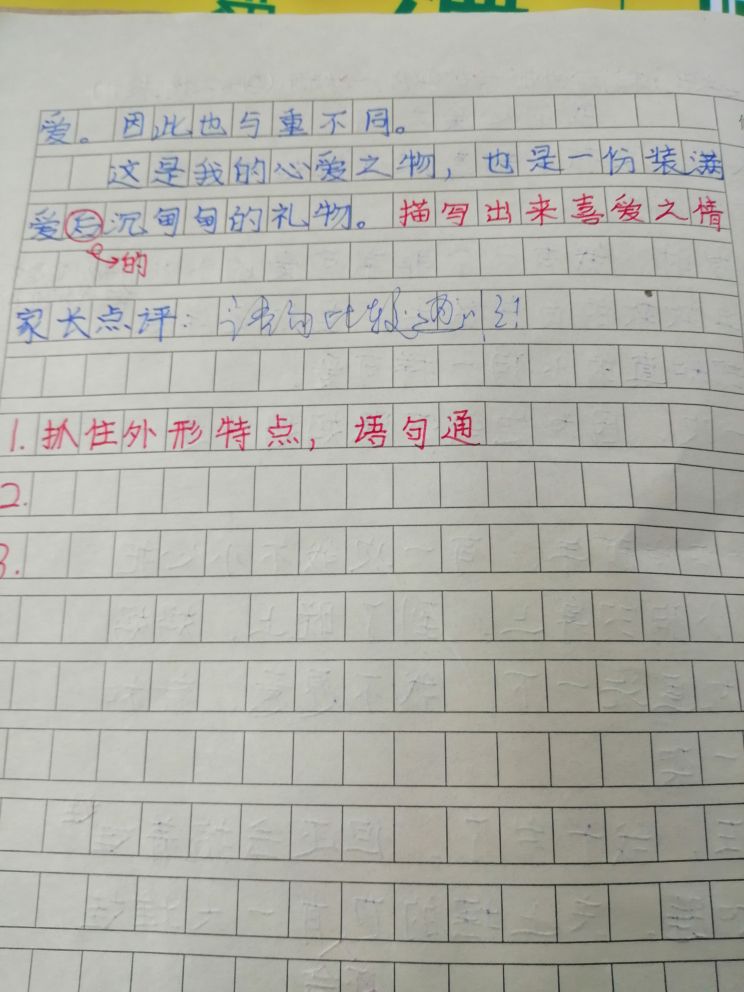 爱。因此也与重不同。
这是我的心爱之物，也是一份装满
爱后沉甸甸的礼物。描写出来喜爱之情
的
家长点评：语句比较通顺！
1.抓住外形特点，语句通
2.
3.